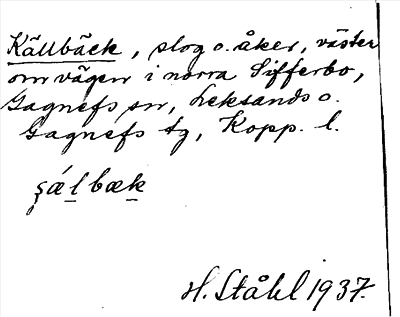 Källbäck, slog o. åker, väster
om vägen i norra Sifferbo,
Gagnefs sn, Leksands o.
Gagnefs tg, Kopp. l.
ʂǽl bæk
H. Ståhl 1937.